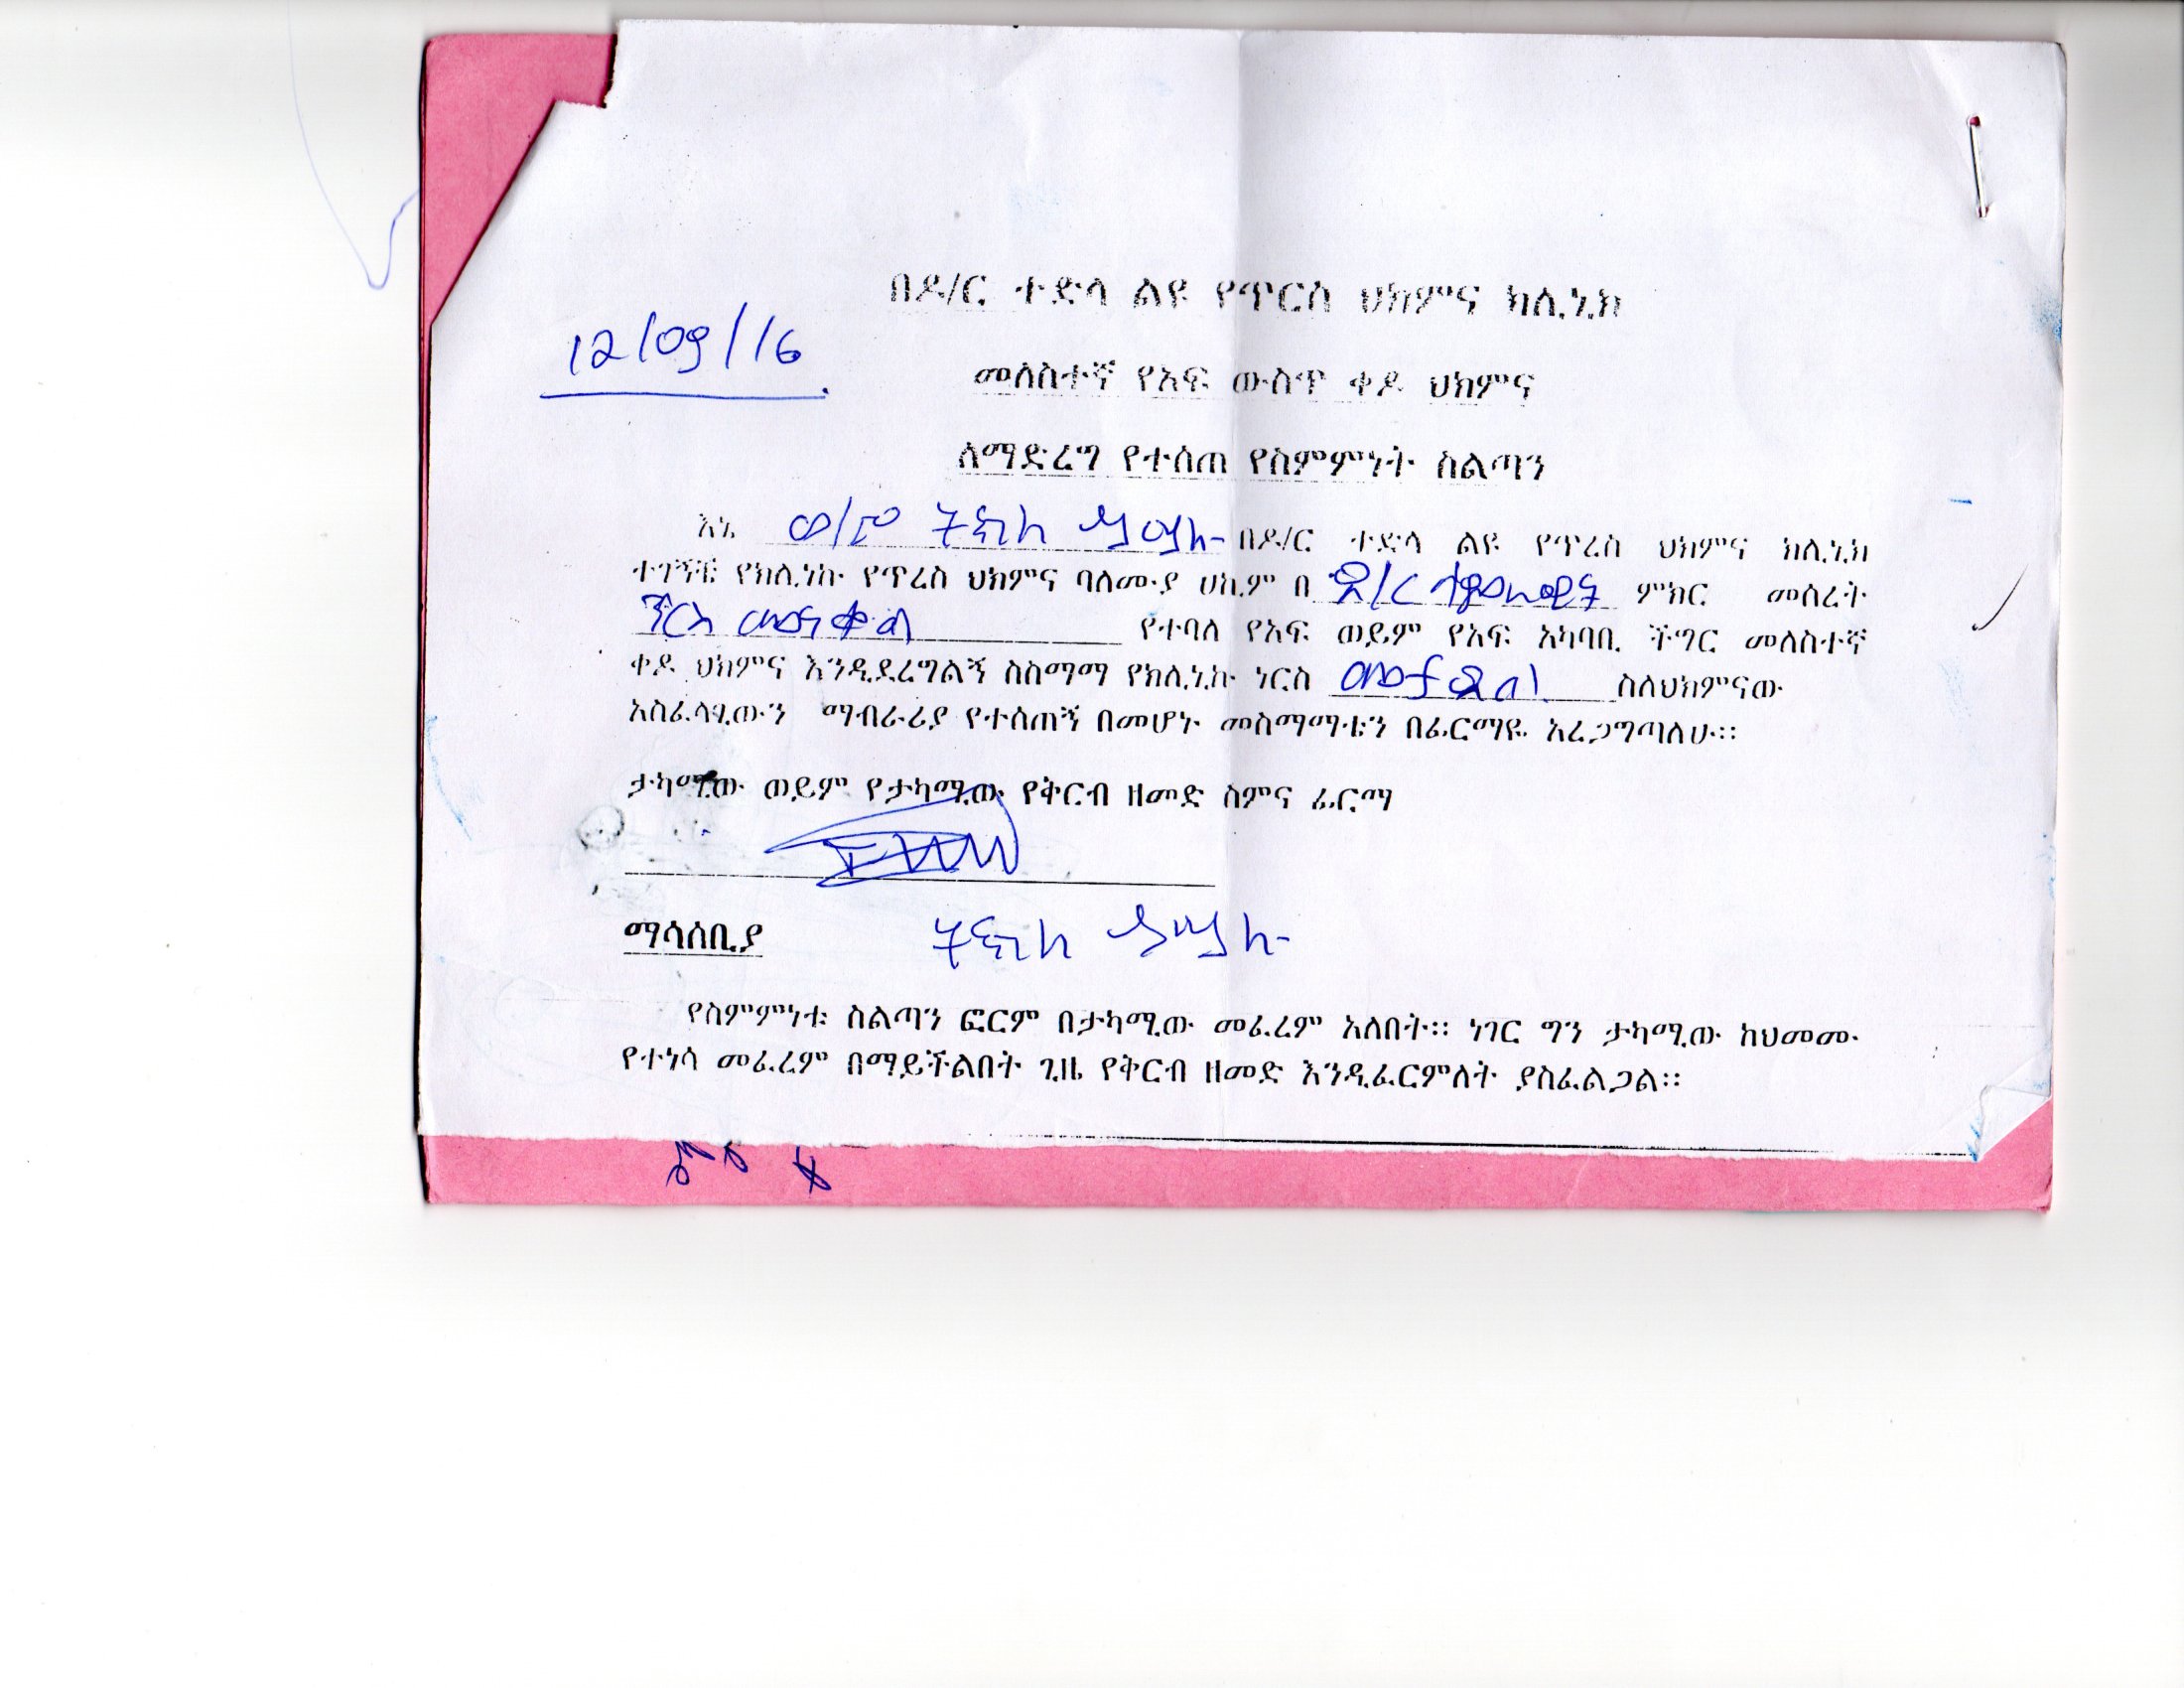 በዶ/ር ተድላ ልዩ የጥርስ ህክምና ክሊኒክ
12/09/16
መለስተኛ የአፍ ውስጥ ቀዶ ህክምና
ለማድረግ የተሰጠ የስምምነት ስልጣን
እኔ ወ/ሮ በዶ/ር ተድላ ልዩ የጥረስ ህክምና ክሊኒክ
ተገኝቼ የክሊነኩ የጥረስ ህክምና ባለሙያ ሀኪም በ ዶ/ር ምክር መሰረት
የተባለ የአፍ ወይም የአፍ አካባቢ ችግር መለስተኛ
ቀዶ ህክምና እንዲደረግልኝ ስስማማ የክሊኒኩ ነርስ ስለህክምናው
አስፈላጊውን ማብራሪያ የተሰጠኝ በመሆኑ መስማማቴን በፊርማዬ አረጋግጣለሁ፡፡
ታካሚው ወይም የታካሚው የቅርብ ዘመድ ስምና ፊርማ
ማሳሰቢያ
የስምምነቱ ስልጣን ፎርም በታካሚው መፈረም አለበት፡፡ ነገር ግን ታካሚው ከህመሙ
የተነሳ መፈረም በማይችልበት ጊዜ የቅርብ ዘመድ እንዲፈርምለት ያስፈልጋል፡፡